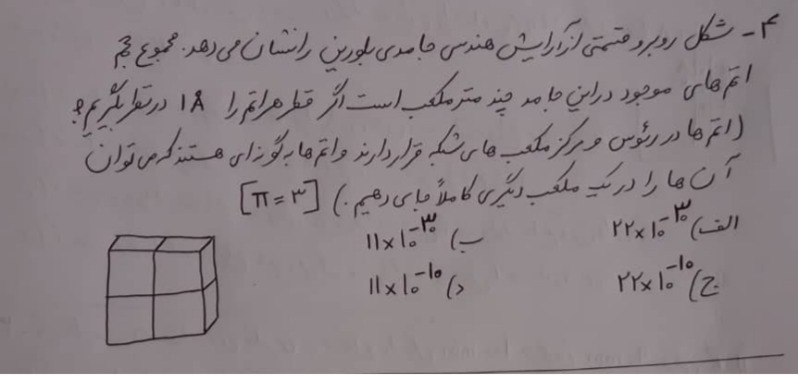 ۴- شکل روبرو قسمتی از آرایش هندسی جامدی بلورین را نشان می دهد. مجموع حجم
اتم های موجود در این جامد چند متر مکعب است اگر قطر هر اتم را ۱Å در نظر بگیریم؟
(اتم ها در رئوس و مرکز مکعب های شبکه قرار دارند و اتم ها به گونه ای هستند که می توان
آن ها را در یک مکعب دیگری کاملاً جای دهیم.) [π = ۳]
الف) ۲۲×۱۰⁻³⁰ ب) ۱۱×۱۰⁻³⁰
ج) ۲۲×۱۰⁻¹⁰ د) ۱۱×۱۰⁻¹⁰